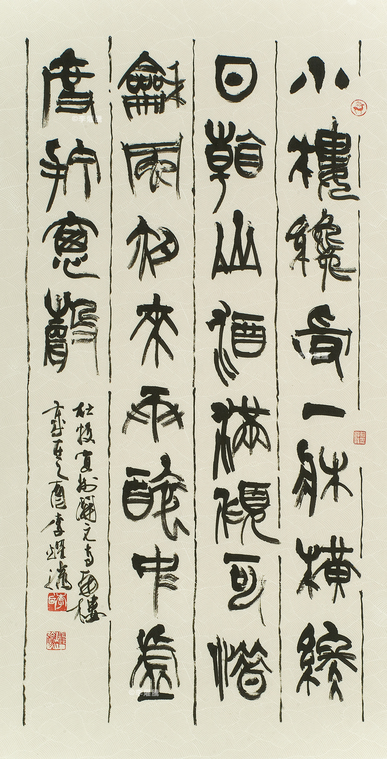 小樓纔受一牀橫終
日看山酒滿傾可惜
龢風夜來雨醉中虛
度打窗聲
杜牧宣州開元寺南樓
歲在乙酉李